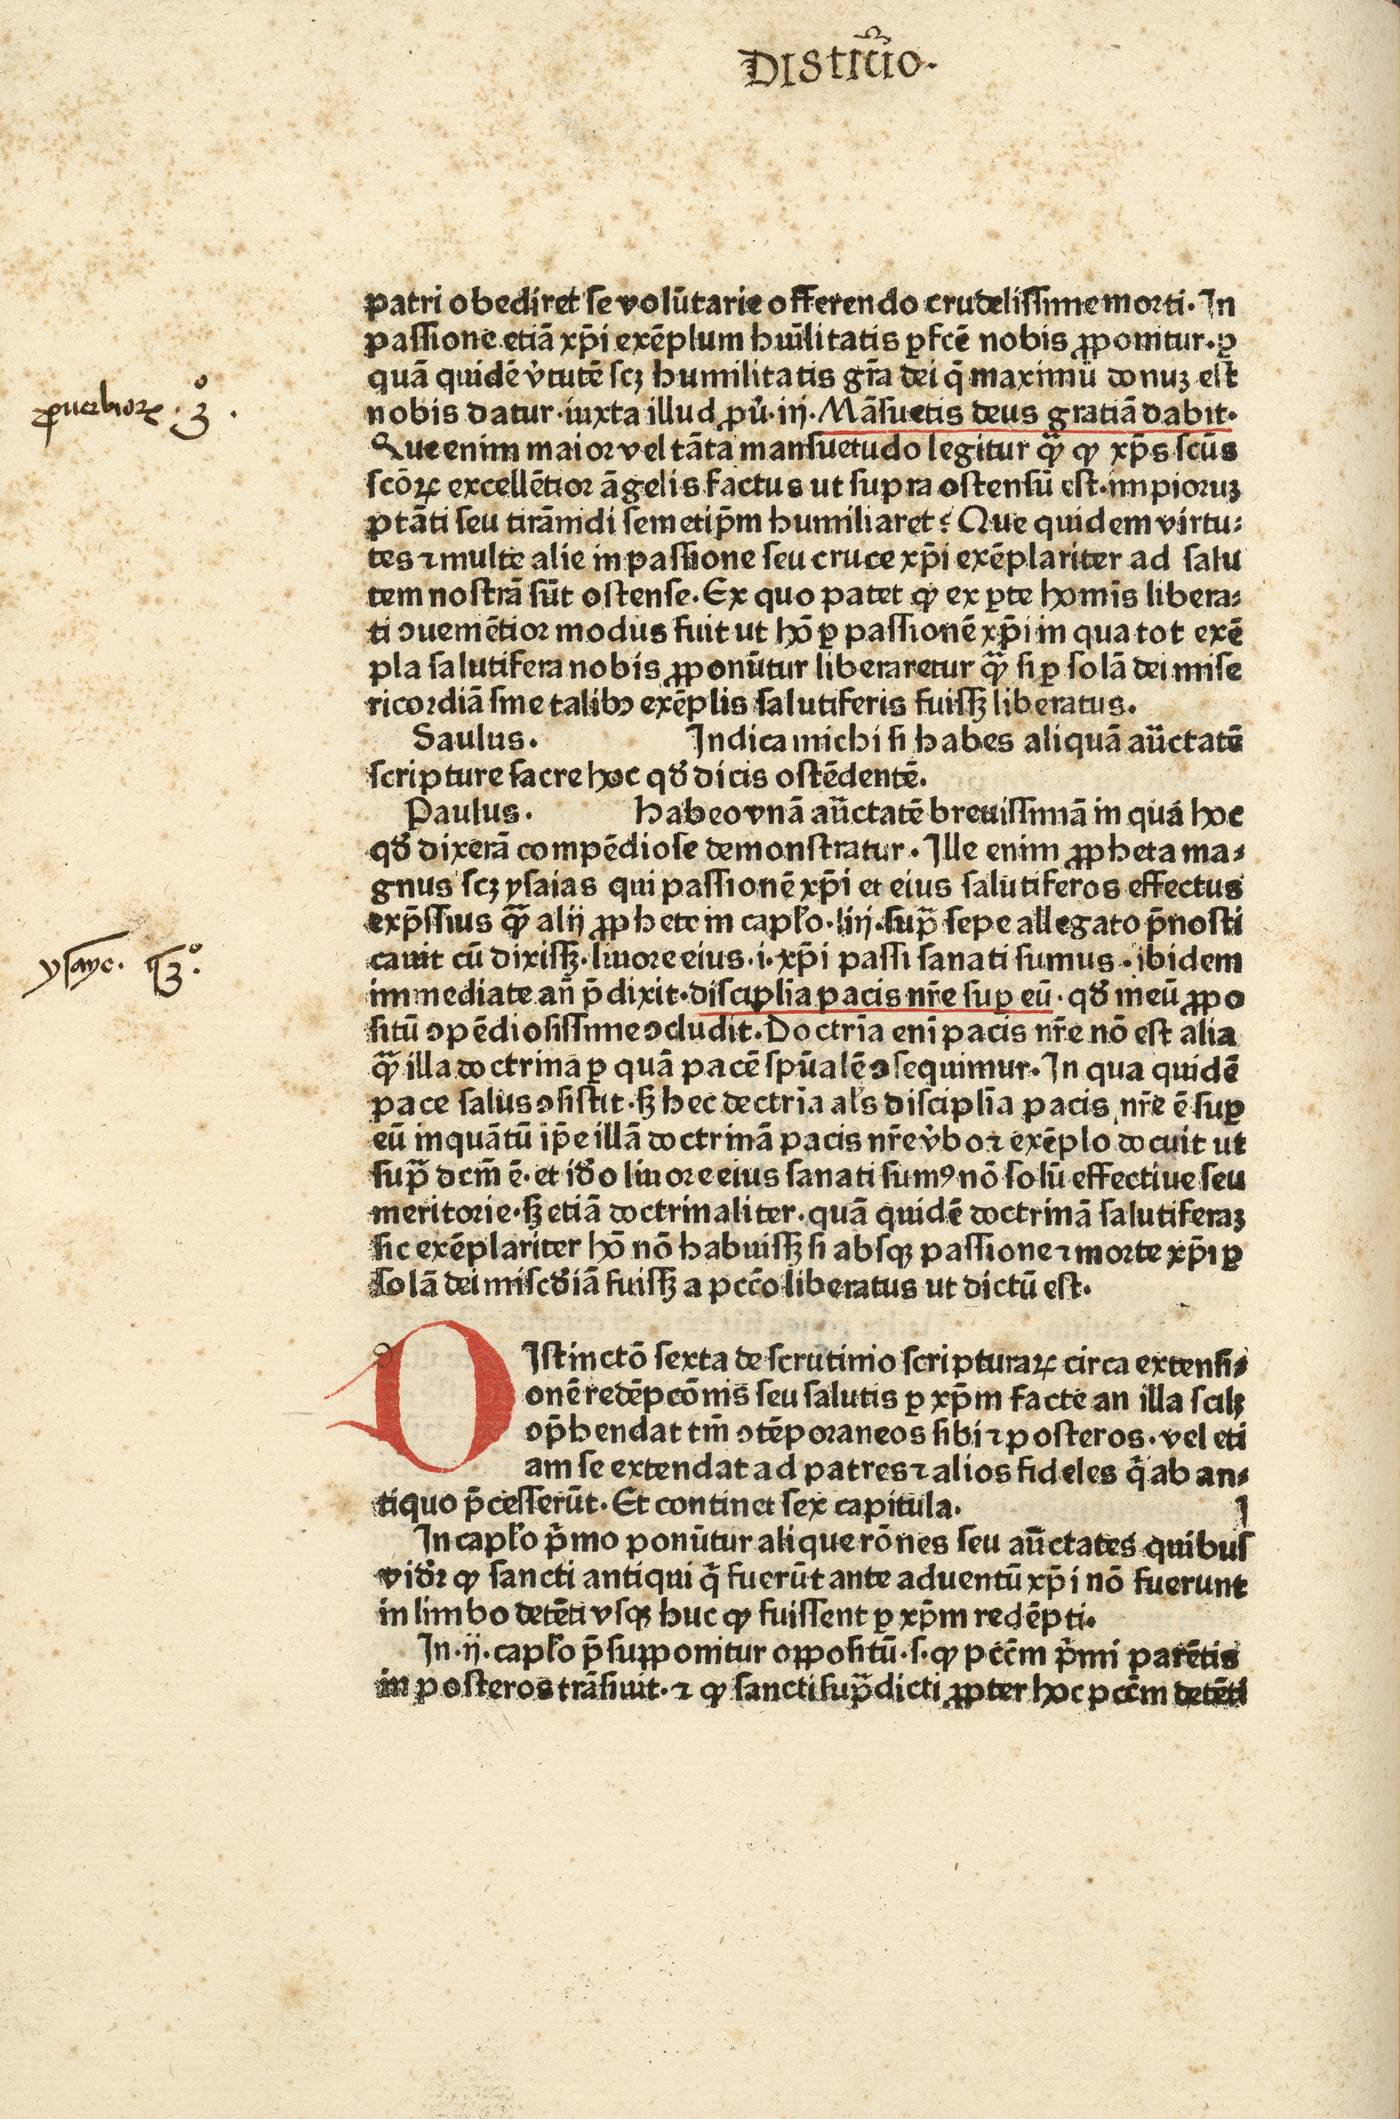 Distīctio.
patri obediret se volūtarie offerendo crudelissime morti. In
passione etiā xp̄i exēplum hūilitatis ꝑfcē nobis ꝓponitur. ꝑ
quā quidē v̓tutē scꝫ humilitatis gr̄a dei q̄ maximū donuꝫ est
ꝓuerbioꝝ. 3º.
nobis datur. iuxta illud ꝓu̓. iij. Māsuetis deus gratiā dabit.
Que enim maior vel tāta mansuetudo legitur qꝫ̄ ꝙ xp̄s scūs
scōꝝ excellētior āgelis factus ut supra ostensū est. impioruꝫ
ptāti seu tirānidi semetip̄m humiliaret? Que quidem virtu⸗
tes ⁊ multe alie in passione seu cruce xp̄i exēplariter ad salu
tem nostrā sūt ostense. Ex quo patet ꝙ ex ꝑte hoīnis libera⸗
ti ↄuenētior modus fuit ut hō ꝑ passionē xp̄i in qua tot exē
pla salutifera nobis ꝓponūtur liberaretur qꝫ̄ si ꝑ solā dei mise
ricordiā sine talibꝰ exēplis salutiferis fuissꝫ liberatus.
Saulus. Indica michi si habes aliquā aūctatē
scripture sacre hoc qd̓ dicis ostēdentē.
Paulus. habeo vnā aūctatē breuissimā in qua hoc
qd̓ dixerā compēdiose demonstratur. Ille enim ꝓpheta ma⸗
gnus scꝫ ysaias qui passionē xp̄i et eius salutiferos effectus
exp̄ssius qꝫ̄ alij ꝓphete in capl̓o. liij. sup̄ sepe allegato p̄nosti
ysaye. 53º.
cauit cū dixissꝫ. liuore eius. i. xp̄i passi sanati sumus. ibidem
immediate an̄ p̄dixit. disciplīa pacis nr̄e suꝑ eū. qd̓ meū ꝓpo
sitū ↄpēdiosissime ↄcludit. Doctrīa enī pacis nr̄e nō est alia
qꝫ̄ illa doctrina ꝑ quā pacē spūalē ↄsequimur. In qua quidē
pace salus ↄsistit. sꝫ hec doctrīa al̓s disciplīa pacis nr̄e ē suꝑ
eū inquātū ip̄e illā doctrinā pacis nr̄e v̓bo ⁊ exēplo docuit ut
sup̄ dcm̄ ē. et id̓o liuore eius sanati sumꝰ nō solū effectiue seu
meritorie. sꝫ etiā doctrinaliter. quā quidē doctrinā salutiferaꝫ
sic exēplariter hō nō habuissꝫ si absqꝫ passione ⁊ morte xp̄i ꝑ
solā dei misc̓diā fuissꝫ a pctō liberatus ut dictū est.
DIstinctō sexta de scrutinio scripturaꝝ circa extensi⸗
onē redēpcōnis seu salutis ꝑ xp̄m facte an illa scilꝫ
ↄp̄hendat tm̄ ↄtēporaneos sibi ⁊ posteros. vel eti
am se extendat ad patres ⁊ alios fideles q̄ ab an⸗
tiquo p̄cesserūt. Et continet sex capitula. I
In capl̓o p̓mo ponūtur alique rōnes seu aūctates quibus
vid̓r ꝙ sancti antiqui q̄ fuerūt ante aduentū xp̄i nō fuerunt
in limbo detēti vsqꝫ huc ꝙ fuissent ꝑ xp̄m redēpti.
In. ij. capl̓o p̄supponitur oppositū. s. ꝙ pctm̄ p̓mi parētis
in posteros trāsiuit. ⁊ ꝙ sancti sup̄dicti ꝓpter hoc pctm̄ detēti